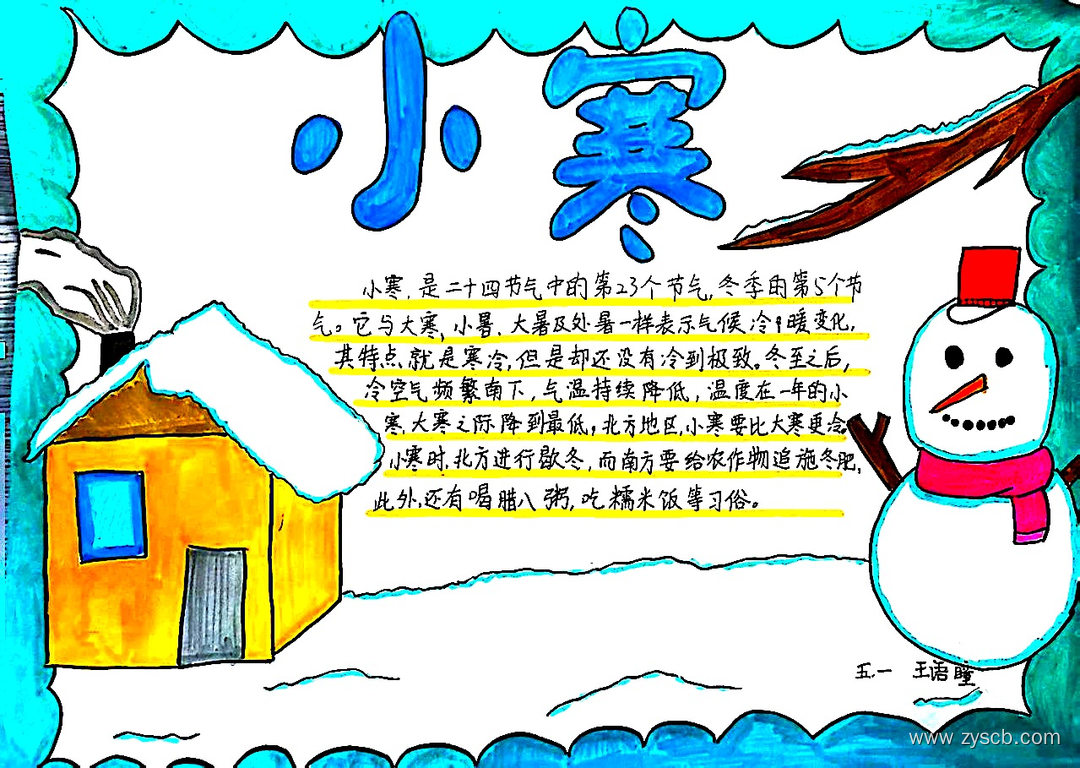 小寒
小寒,是二十四节气中的第23个节气,冬季的第5个节
气。它与大寒,小暑、大暑及处暑一样表示气候冷暖变化,
其特点就是寒冷,但是却还没有冷到极致。冬至之后,
冷空气频繁南下,气温持续降低,温度在一年的小
寒、大寒之际降到最低,北方地区,小寒要比大寒更冷
小寒时,北方进行歇冬,而南方要给农作物追施冬肥,
此外,还有喝腊八粥,吃糯米饭等习俗。
五.一 王语瞳
www.zyscb.com